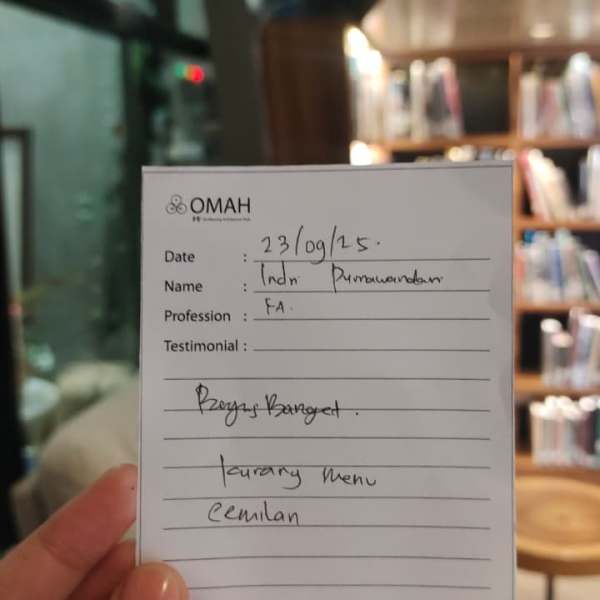 OMAH
Date : 23/09/25.
Name : Indri Purnawandari
Profession : FA.
Testimonial :
Bagus Banget.
kurang menu
cemilan